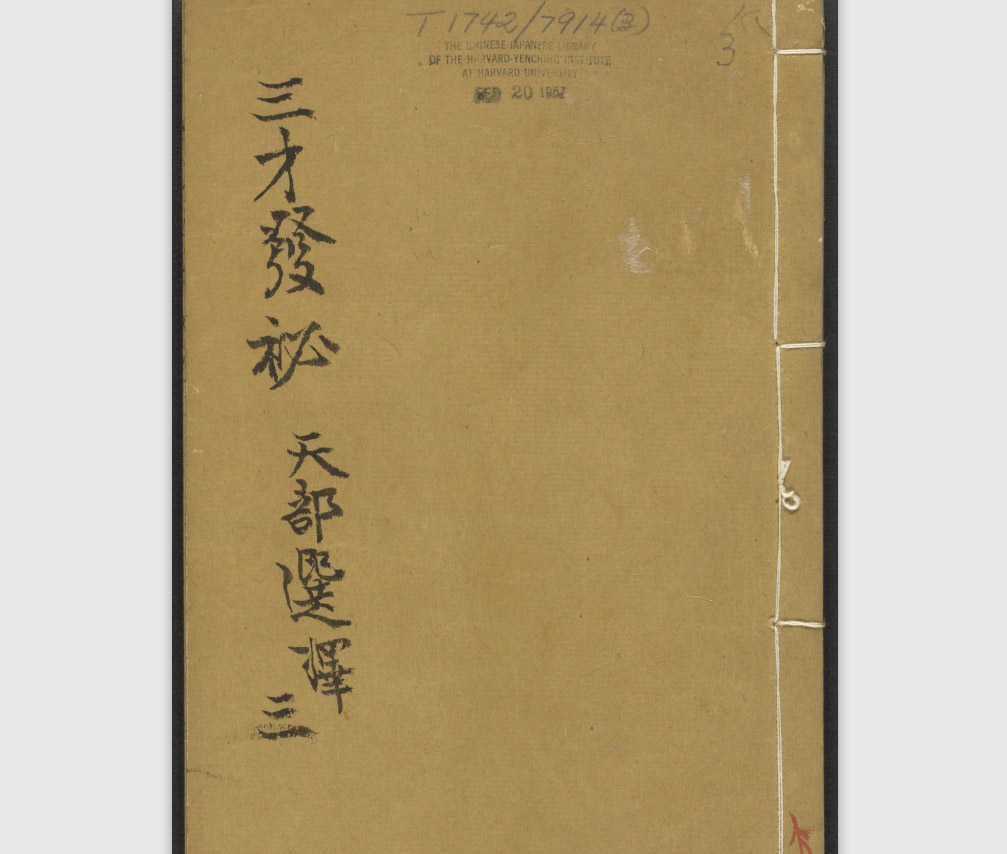 T 1742/7914(3)
3
THE CHINESE-JAPANESE LIBRARY
OF THE HARVARD-YENCHING INSTITUTE
AT HARVARD UNIVERSITY
FEB 20 1957
三才發祕
天部選擇
三